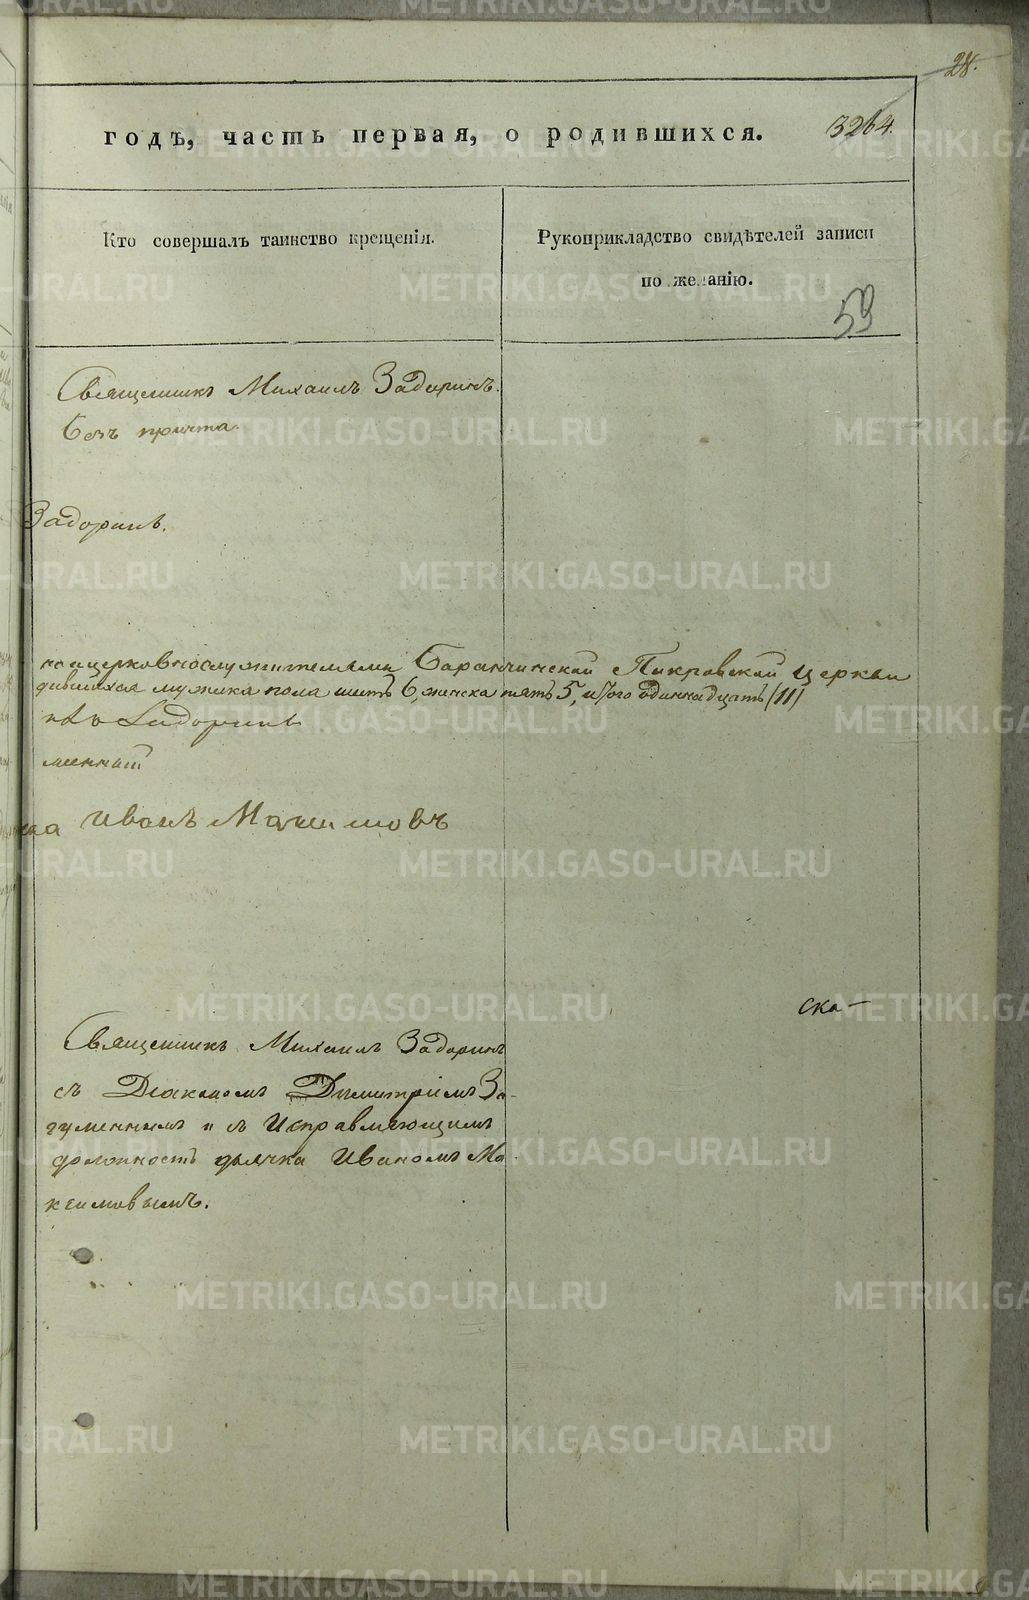 28.
годъ, часть первая, о родившихся.
3264.
Кто совершалъ таинство крещенія.
Рукоприкладство свидѣтелей записи
по желанію.
59
Священникъ Михаилъ Задоринъ.
безъ причта.
Задоринъ.
церковнослужителями Баранчинской Покровской церкви
дившихся мужска пола шесть 6, женска пять 5, итого одиннадцать (11)
Задоринъ
менный
Иванъ Максимовъ
ска-
Священникъ Михаилъ Задоринъ
съ Діакономъ Димитріемъ За-
гуменнымъ и съ Исправляющимъ
должность дьячка Иваномъ Ма-
ксимовымъ.
METRIKI.GASO-URAL.RU